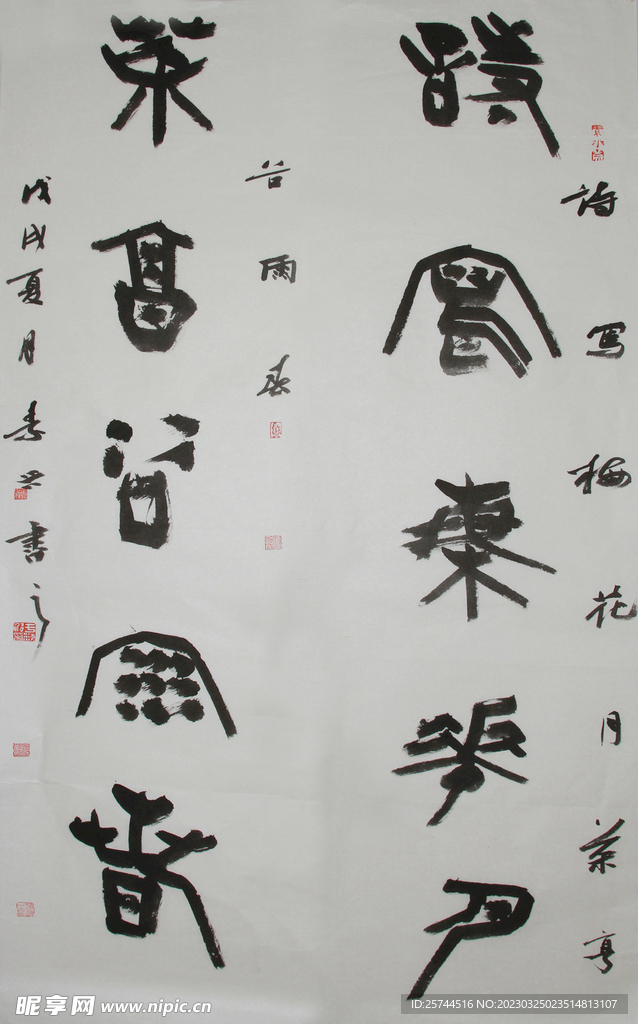 詩写梅花月茶亨
詩寫梅華月
谷雨春
茶亨谷雨春
戊戌夏月素之書
昵享网 www.nipic.cn
ID:25744516 NO:20230325023514813107